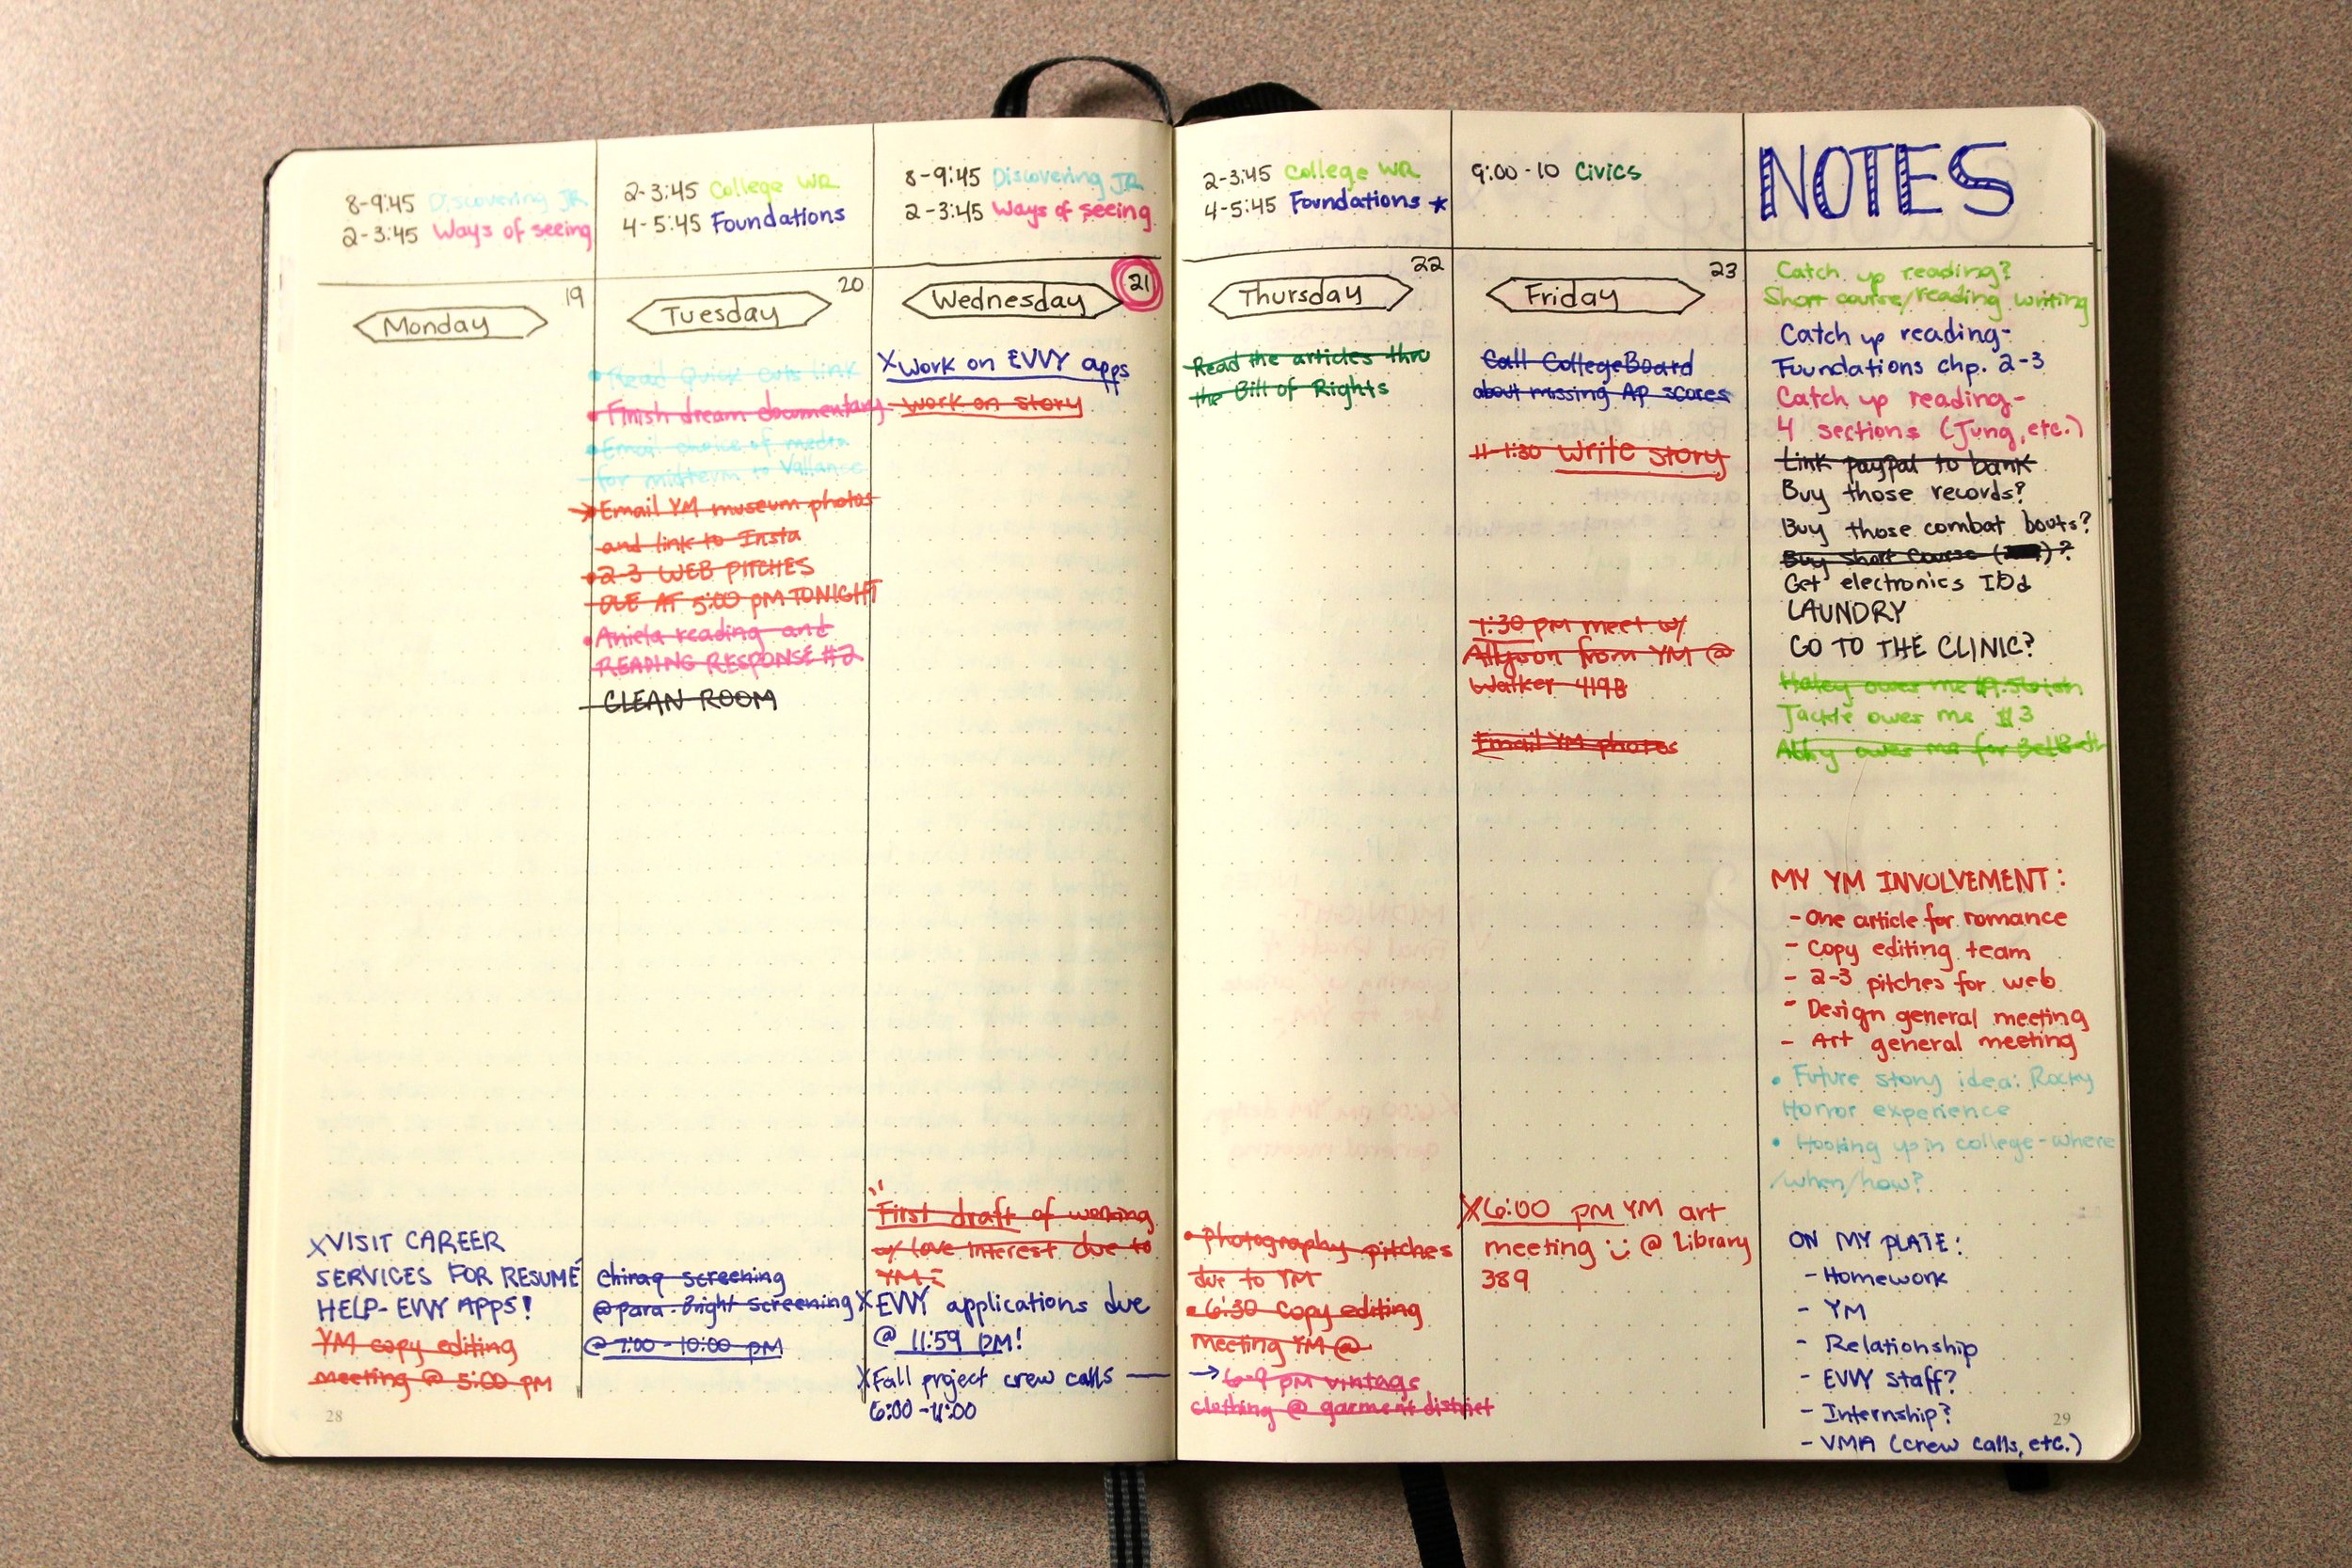 8-9:45 Discovering JR
2-3:45 Ways of seeing
19
Monday
XVISIT CAREER
SERVICES FOR RESUMÉ
HELP- EVVY APPS!
YM copy editing
meeting @ 5:00 pm
28
2-3:45 College WR
4-5:45 Foundations
20
Tuesday
• Read Quick cuts link
• Finish dream documentary
• Email choice of media
for midterm to Vallance
→ Email YM museum photos
and link to Insta
• 2-3 WEB PITCHES
DUE AT 5:00 PM TONIGHT
• Aniela reading and
READING RESPONSE #2
- CLEAN ROOM
Chiraq screening
@ para. Bright screening
@ 7:00-10:00 pm
8-9:45 Discovering JR
2-3:45 Ways of seeing
21
Wednesday
X Work on EVVY apps
- work on story
First draft of working
w/ love interest due to
YM
X EVVY applications due
@ 11:59 PM!
X Fall project crew calls —
6:00-11:00
2-3:45 College WR
4-5:45 Foundations ★
22
Thursday
Read the articles thru
the Bill of Rights
• Photography pitches
due to YM
• 6:30 Copy editing
meeting YM @
→ 6-9 pm vintage
clothing @ garment district
9:00-10 Civics
23
Friday
Call CollegeBoard
about missing AP scores
11-1:30 Write story
1:30 pm meet w/
Allyson from YM @
Walker 419B
Email YM photos
X6:00 pm YM art
meeting :) @ Library
389
NOTES
Catch up reading?
Short course/reading writing
Catch up reading-
Foundations chp. 2-3
Catch up reading-
4 sections (Jung, etc.)
Link paypal to bank
Buy those records?
Buy those combat boots?
Buy Short Course ( )?
Get electronics IDd
LAUNDRY
GO TO THE CLINIC?
Haley owes me
Jackie owes me $3
owes me for
MY YM INVOLVEMENT:
- One article for romance
- Copy editing team
- 2-3 pitches for web
- Design general meeting
- Art general meeting
• Future story idea: Rocky
Horror experience
• Hooking up in college-where
/when/how?
ON MY PLATE:
- Homework
- YM
- Relationship
- EVVY staff?
- Internship?
- VMA (crew calls, etc.)
29